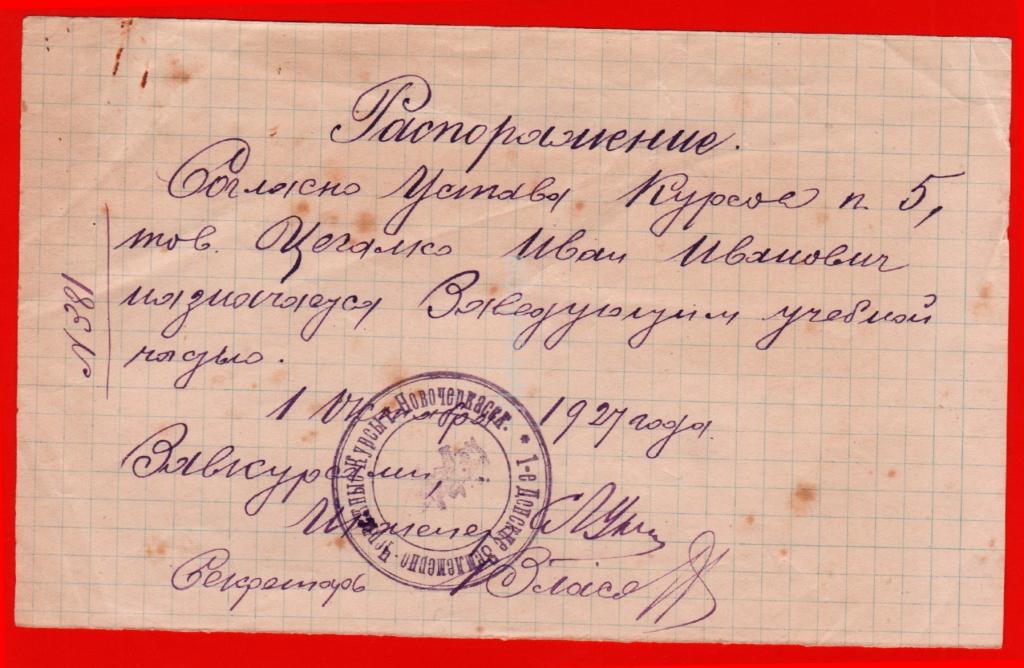 Распоряжение.
Согласно Устава Курсов п. 5,
тов. Цегалко Иван Иванович
назначается Заведующим учебной
частью.
1 Октября 1927 года.
Завкурсами,
Инженер
Секретарь Власов
№ 381
* 1-е Донские Землемерно-Чертежные Курсы г. Новочеркасск.